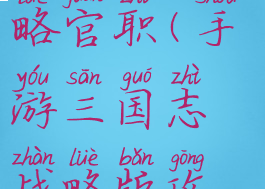 略官职(手
yóu sān guó zhì
游三国志
zhàn lüè bǎn gōng
战略版攻